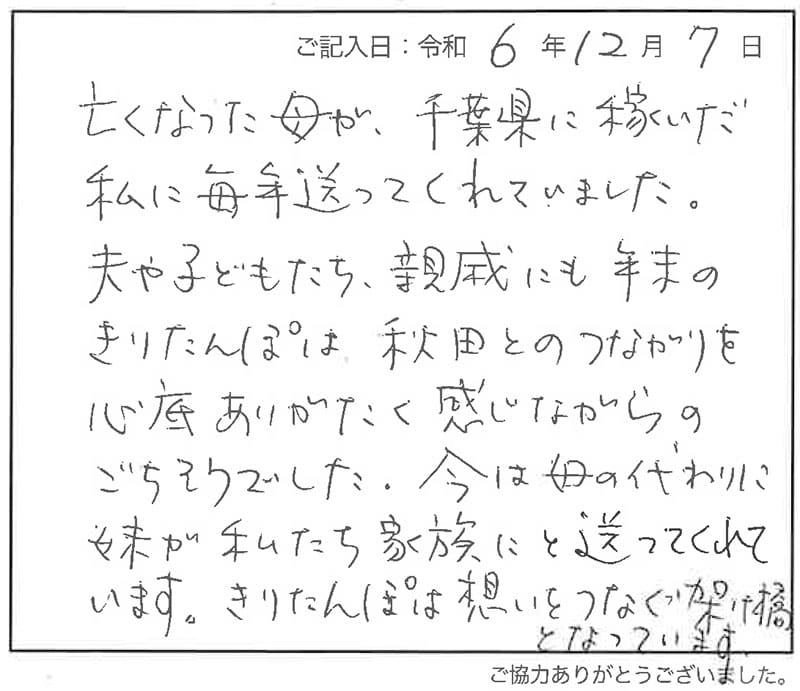 ご記入日：令和 6 年 12 月 7 日
亡くなった母が、千葉県に稼いだ
私に毎年送ってくれていました。
夫や子どもたち、親戚にも年末の
きりたんぽは秋田とのつながりを
心底ありがたく感じながらの
ごちそうでした。今は母の代わりに
妹が私たち家族にと送ってくれて
います。きりたんぽは想いをつなぐ架け橋
となっています。
ご協力ありがとうございました。